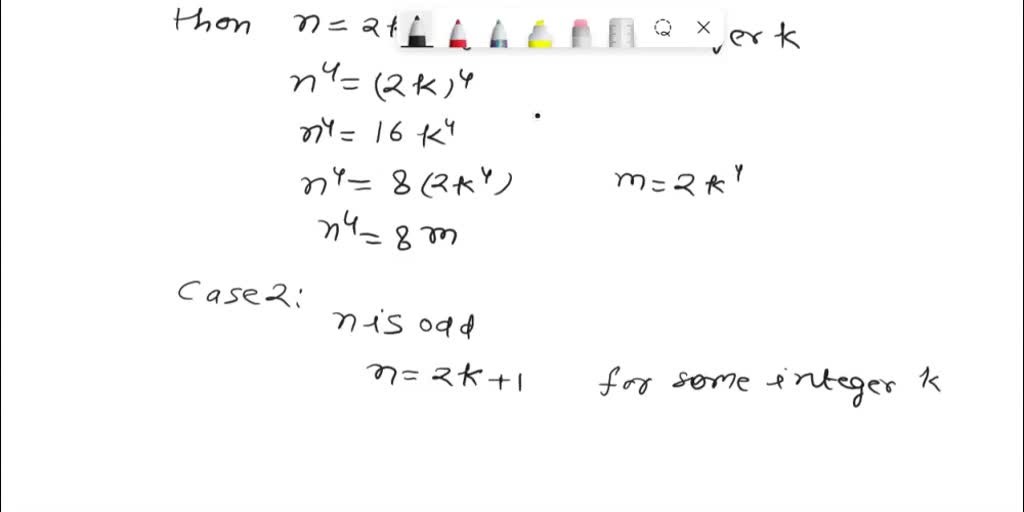 then n = 2k er k
n⁴ = (2k)⁴
n⁴ = 16 k⁴
n⁴ = 8 (2k⁴) m = 2k⁴
n⁴ = 8 m
Case 2:
n is odd
n = 2k + 1 for some integer k